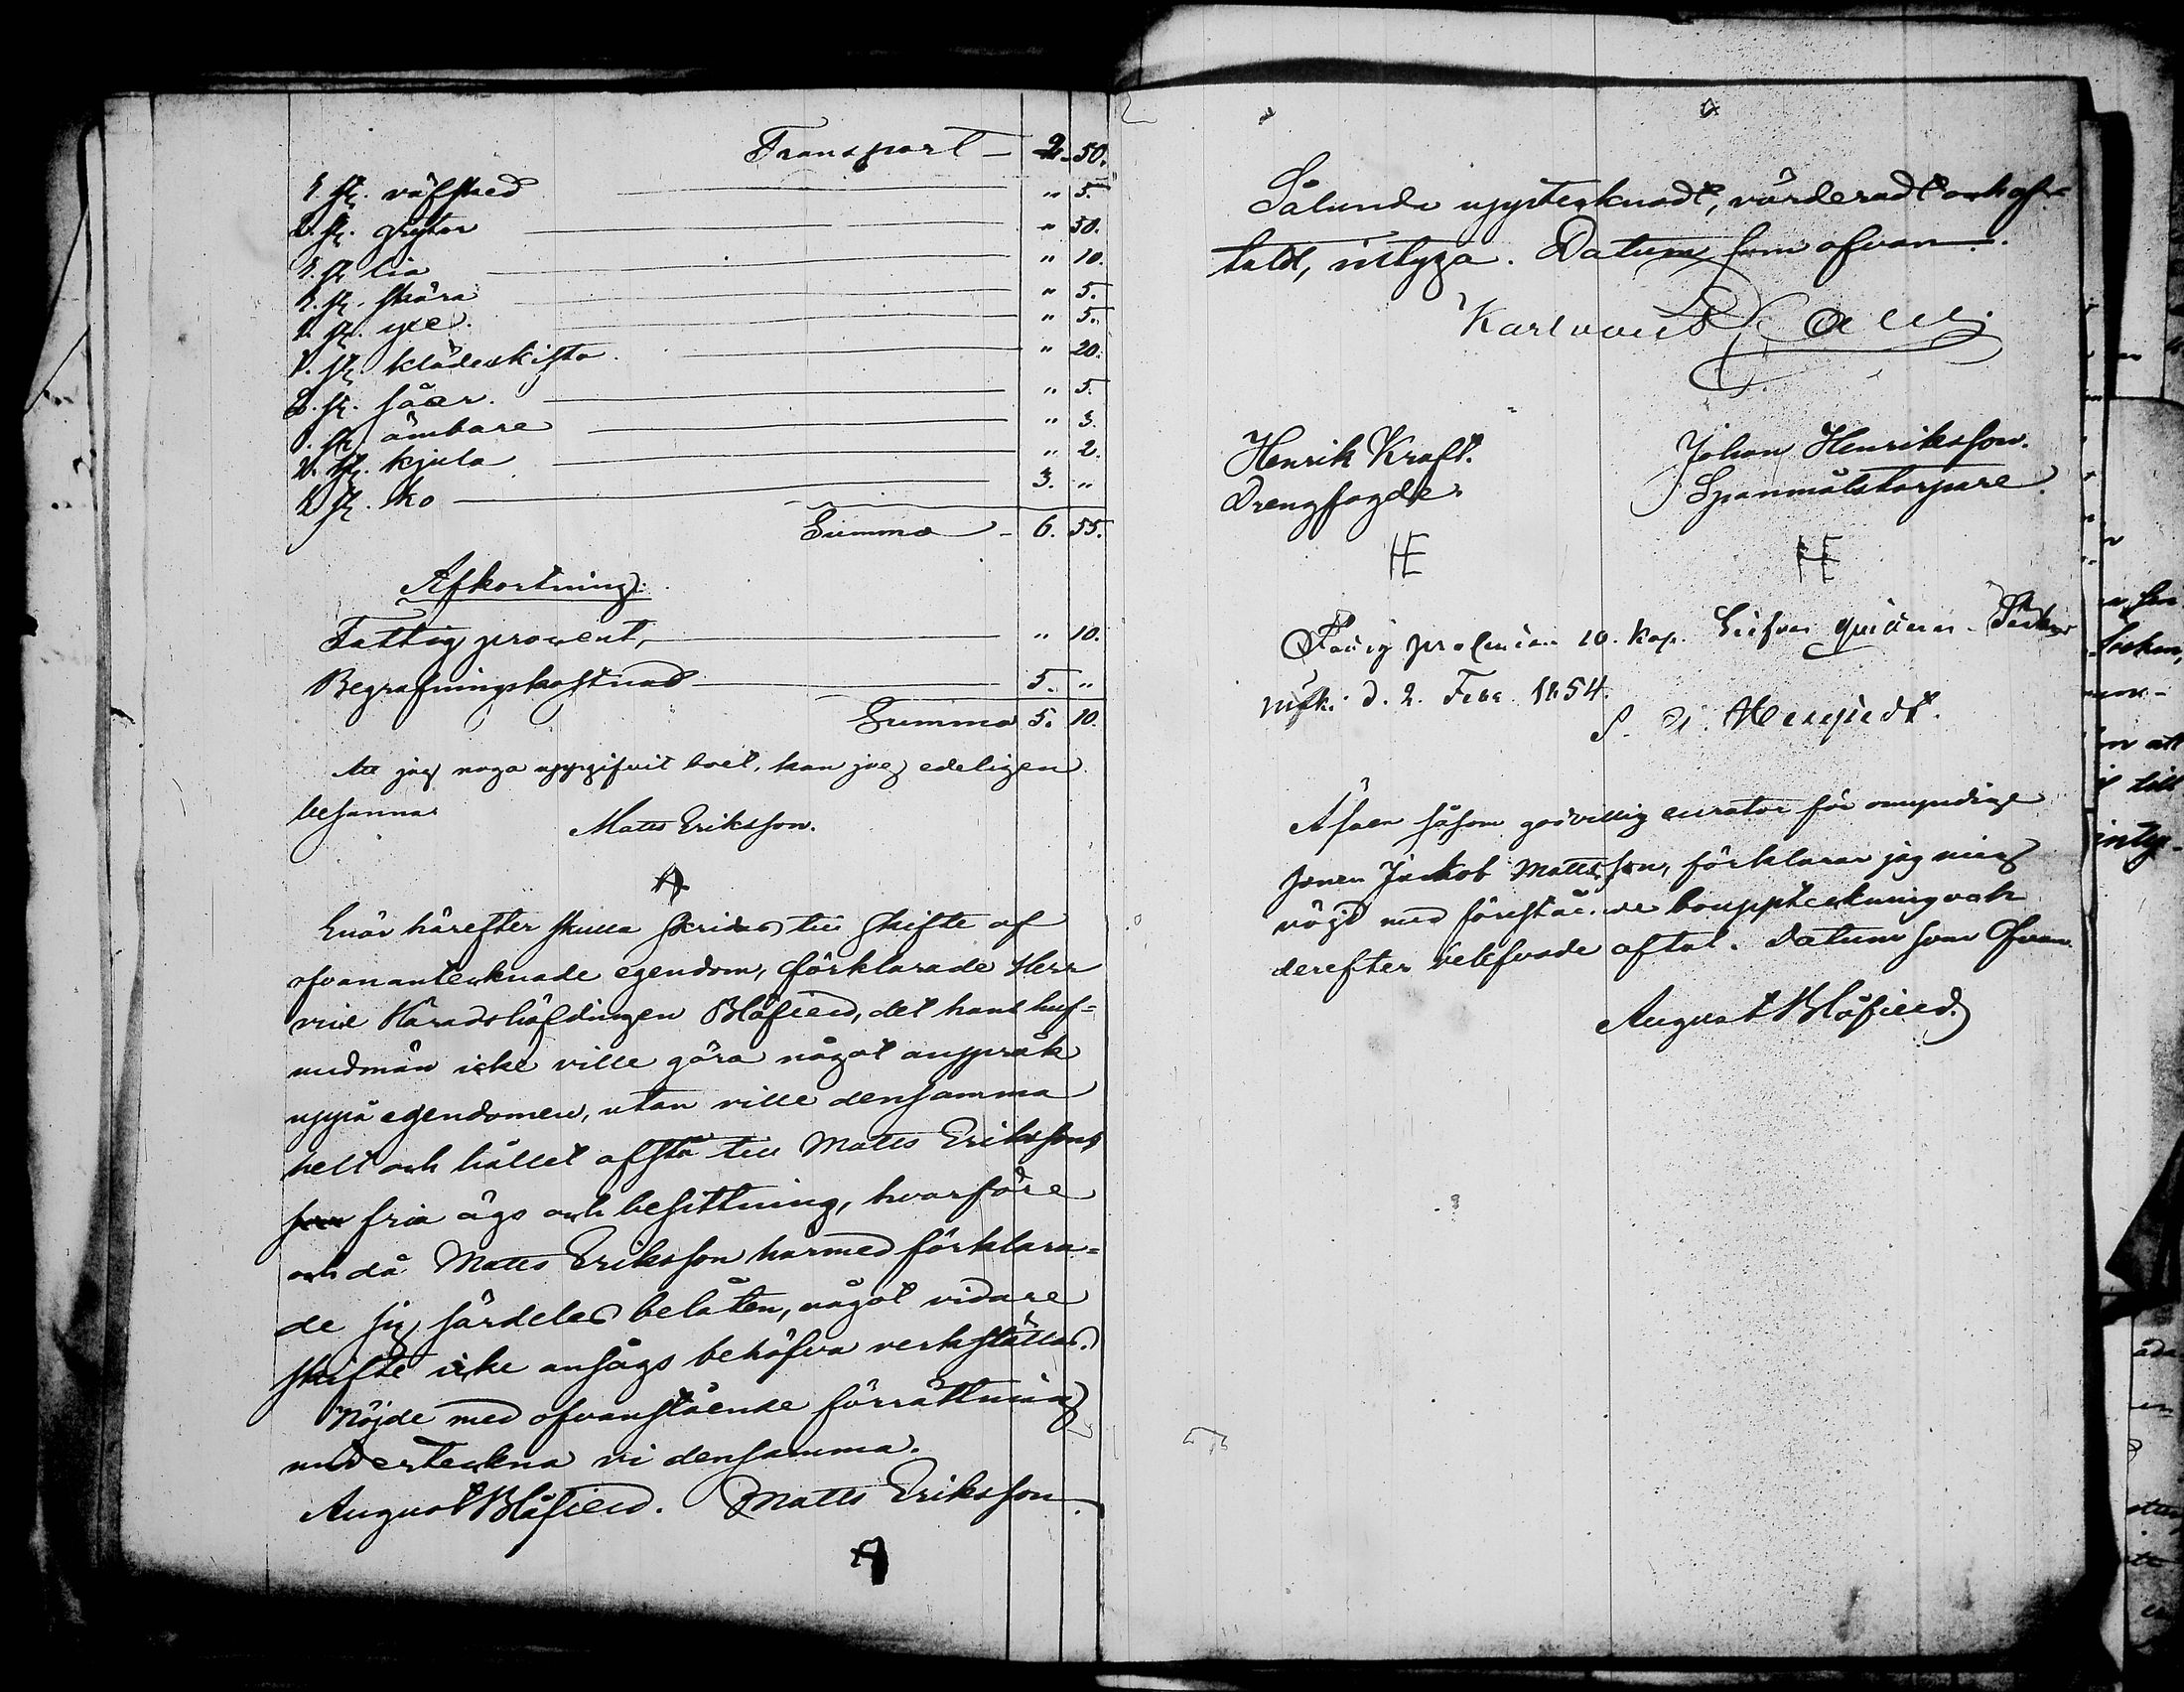 Transport - 2. 50.
1. st. väfsked " 5.
2. st. grytor " 50.
1. st. lia " 10.
1. st. skära " 5.
1. st. yxe. " 5.
1. st. klädeskista. " 20.
2. st. såar. " 5.
1. st. ämbare " 3.
2. st. kjula " 2.
1 st. ko 3. "
Summa - 6. 55.
Afkortning:
Fattig procent, " 10.
Begrafningskostnad 5. "
Summa 5. 10.
Att jag noga uppgifvit boet, kan jag edeligen
besanna.
Matts Eriksson.
Enär härefter skulle skridas till skifte af
ofvanantecknade egendom, förklarade Herr
vice Häradshöfdingen Blåfield, det hans huf-
vudmän icke ville göra något anspråk
uppå egendomen, utan ville densamma
helt och hållet afstå till Matts Erikssons
fria ägo och besittning, hvarföre
och då Matts Eriksson härmed förklara-
de sig särdeles belåten, något vidare
skifte icke ansågs behöfva verkställas.
Nöjde med ofvanstående förrättning
underteckna vi densamma.
August Blåfield. Matts Eriksson.
Sålunda upptecknadt, värderadt och af-
taldt, intyga. Datum som ofvan.
Karl
Henrik Kraft. Johan Henriksson.
Drengfogde. Spanmålstorpare.
HE HE
10. kop.
d. 2. Febr 1854.
Äfven såsom godvillig curator för omyndige
sonen Jakob Mattsson, förklarar jag mig
nöjd med förestående bouppteckning och
derefter aftal. Datum som Ofvan.
August Blåfield.